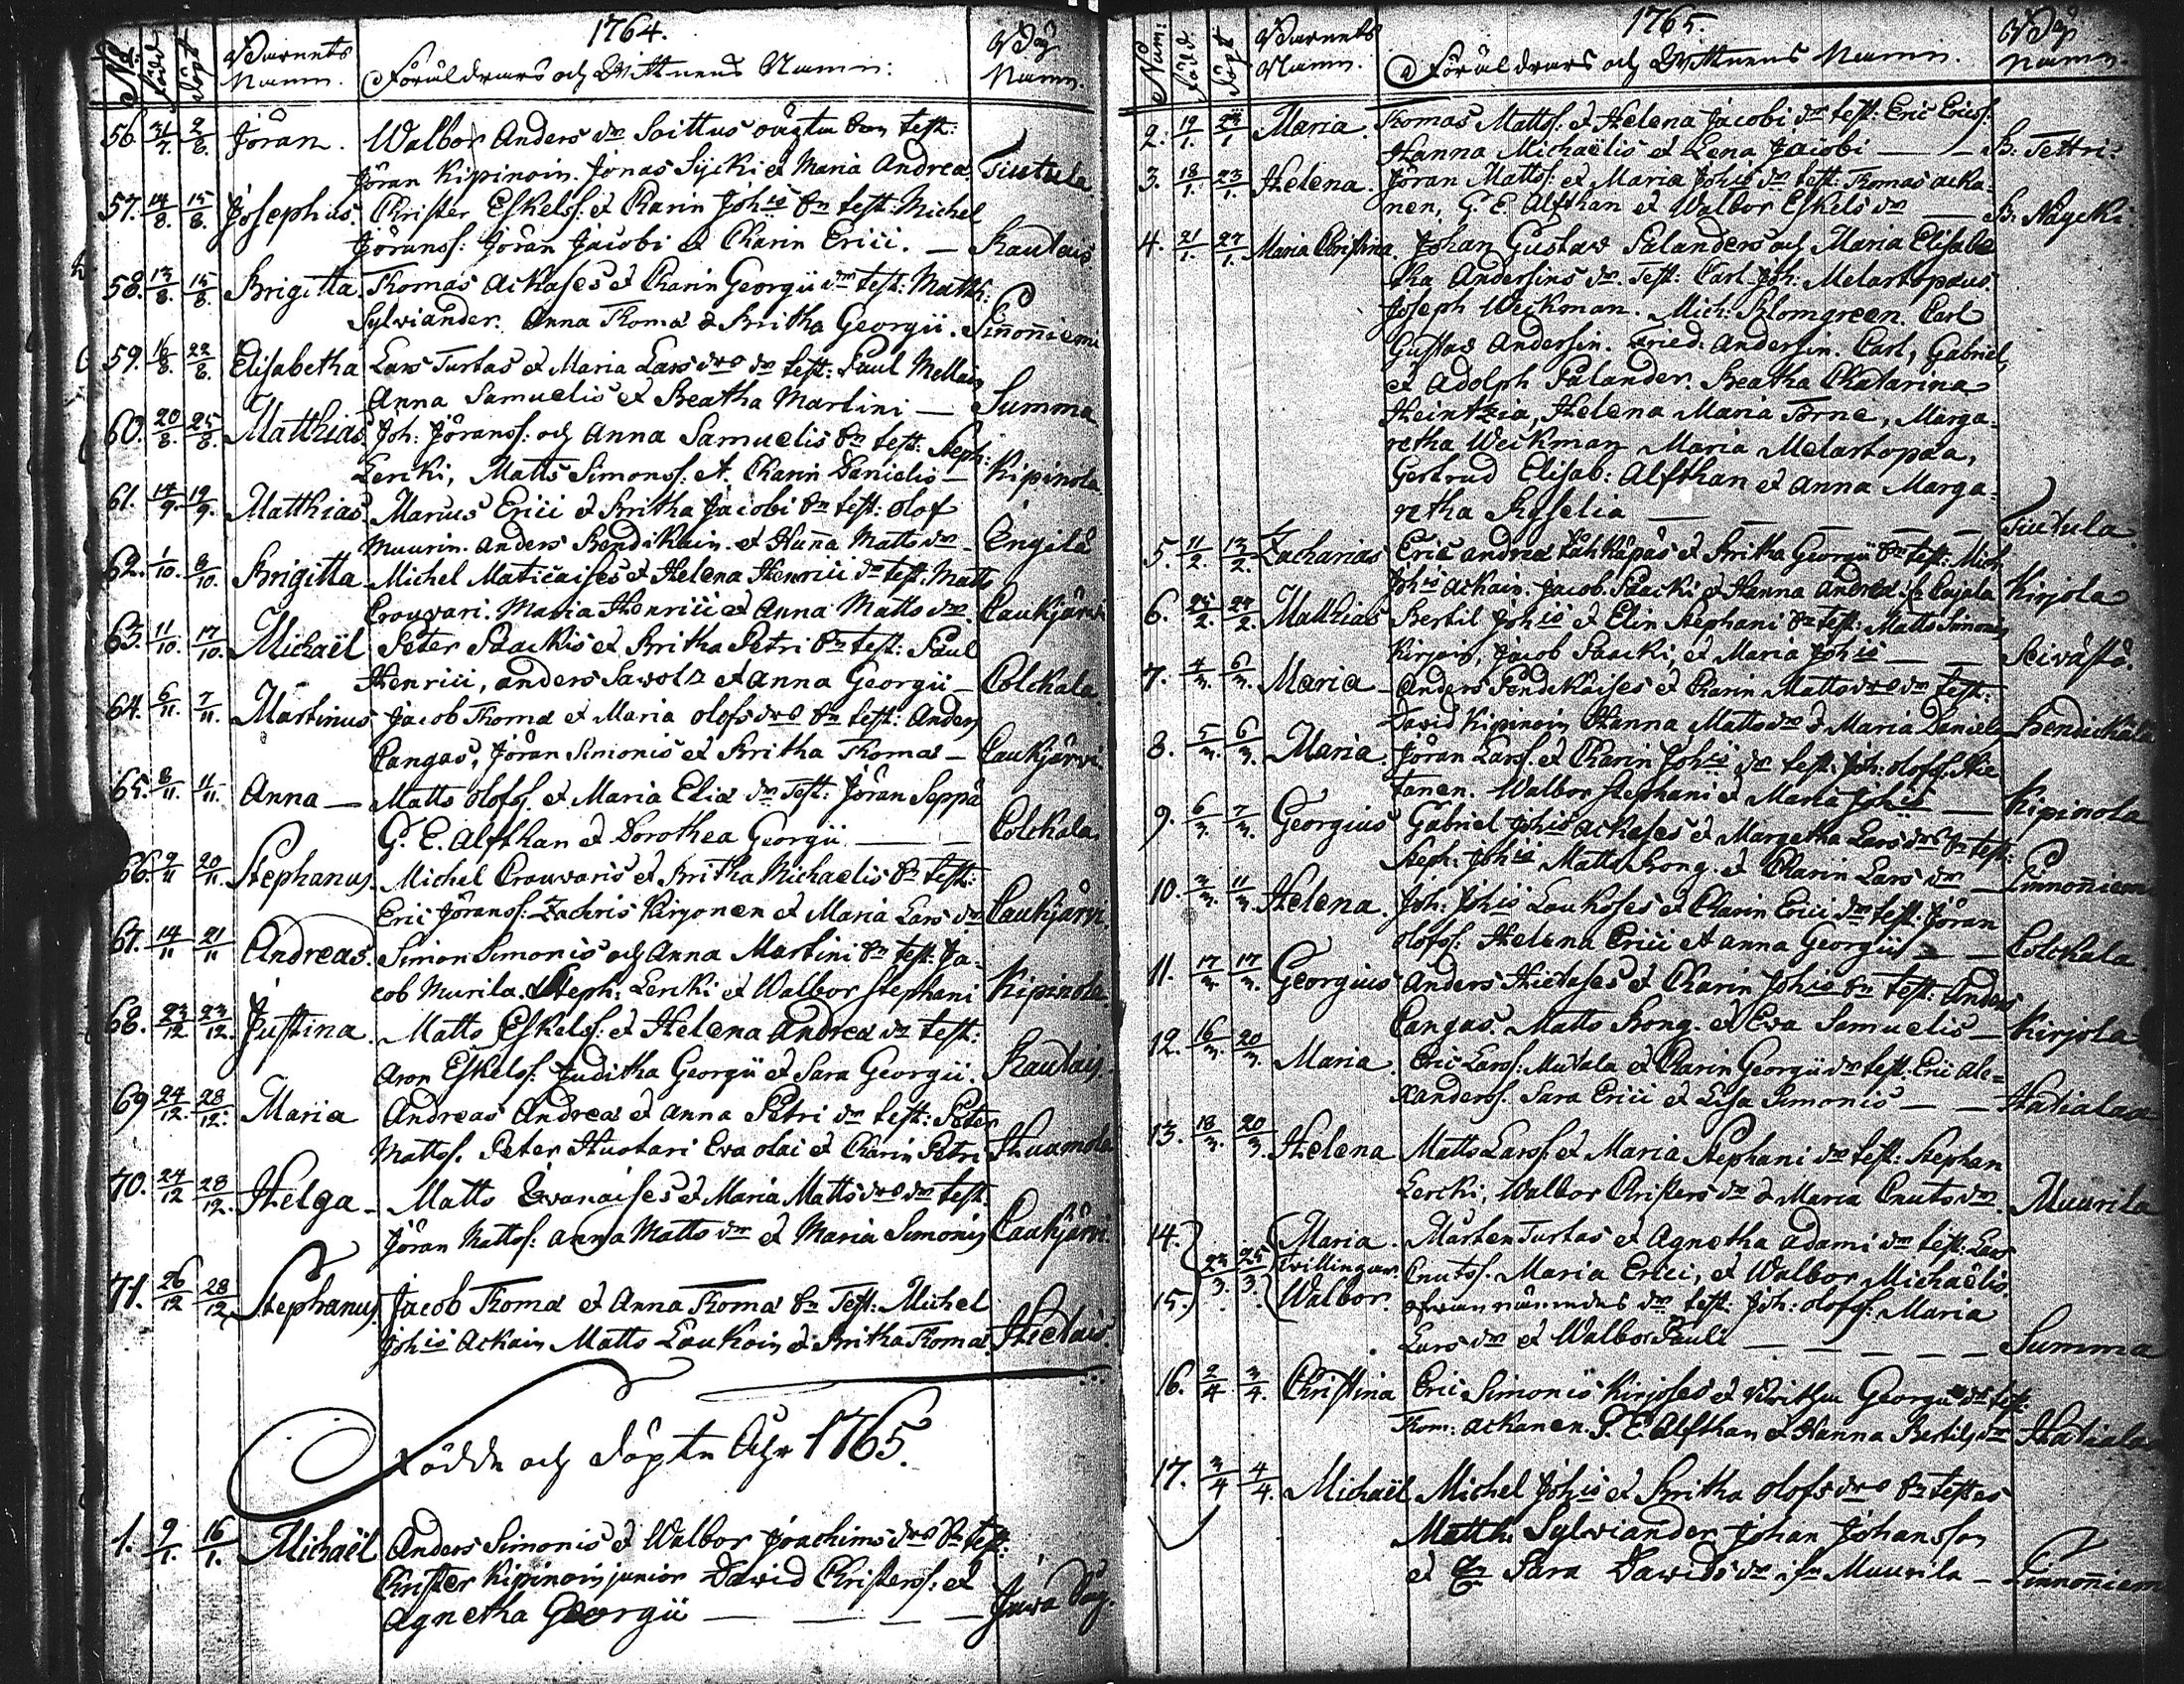 1764.
No Född Döpt Barnets Namn. Föräldrars och Wittnens Namn: Byg Namn.
56. 31/7. 2/8. Jöran. Walbor Anders dr Saittus oägta Son test:
Jöran Kipinoin. Jonas Sycki et Maria Andreæ. Tiutula
57. 14/8. 15/8. Josephus. Christer Eskelss: et Karin Johis Sn test: Michel
Jöranss: Jöran Jacobi et Karin Erici. — Rautais
58. 13/8. 15/8. Brigitta. Thomas Ackases et Karin Georgii dr test: Matth:
Sylviander. Anna Thomæ et Britha Georgii. Pinoñiemi
59. 16/8. 22/8. Elisabetha Lars Turtas et Maria Lars dr dr test: Paul Mellain
Anna Samuelis et Beatha Martini — Summa
60. 20/8. 25/8. Matthias. Joh: Jöranss: och Anna Samuelis Sn test: Steph:
Lercki, Matts Simonss: et. Karin Danielis — Kipinola
61. 14/9. 19/9. Matthias. Marcus Erici et Britha Jacobi Sn test: Olof
Muurin. Anders Bendikain. et Hanna Matts dr — Engilä
62. 1/10. 8/10. Brigitta Michel Maticaises et Helena Henrici dr test: Matts
Crouvari. Maria Henrici et Anna Matts dr. Caukjärvi
63. 11/10. 17/10. Michaël Peter Paackis et Britha Petri Sn test: Paul
Henrici, Anders Sawola et Anna Georgii — Colckala
64. 6/11. 7/11. Martinus Jacob Thomæ et Maria Olofs dr Sn test: Anders
Cangas, Jöran Simonis et Britha Thomas — Caukjärvi.
65. 8/11. 11/11. Anna — Matts Olofss. et Maria Eliæ dr Test: Jöran Seppä
G. E. Alfthan et Dorothea Georgii — — Colckala
66. 9/11 20/11. Stephanus. Michel Crouvaris et Britha Michaelis Sn test:
Eric Jöranss: Zachris Kirjonen et Maria Lars dr Caukjärvi.
67. 14/11 21/11 Andreas. Simon Simonis och Anna Martini Sn test: Ja-
cob Murila. Steph: Lercki et Walbor Stephani Kipinola.
68. 23/12 23/12. Justina. Matts Eskelss: et Helena Andreæ dr test:
Aron Eskelss: Juditha Georgii et Sara Georgii. Rautais.
69 24/12. 28/12. Maria Andreas Andreæ et Anna Petri dr test: Peter
Mattss. Peter Huotari Eva Olai et Karin Petri Huamola
70. 24/12 28/12. Helga — Matts Ewanaises et Maria Matts dr dr test.
Jöran Mattss: Anna Matts dr et Maria Simonis Caukjärvi.
71. 26/12 28/12 Stephanus. Jacob Thomæ et Anna Thomæ Sn Test: Michel
Johis Ackain Matts Laukoin et Britha Thomæ. Hietais.
Födde och döpte Åhr 1765.
1. 9/1. 16/1. Michaël Anders Simonis et Walbor Joachims dr Sn test:
Christer Kipinoin junior David Christerss: et
Agnetha Georgii — — — Juva Såg.
1765.
Num: Född Döpt Barnets Namn. Föräldrars och Wittnens Namn. Byg Namn.
2. 19/1. 23/1 Maria. Thomas Mattss: et Helena Jacobi dr test: Eric Ericss:
Hanna Michaëlis et Lena Jacobi — — B: Tettri:
3. 18/1. 23/1. Helena. Jöran Mattss: et Maria Johis dr test: Thomas Acka-
nen, G. E. Alfthan et Walbor Eskels dr — B: Näycki
4. 21/1. 27/1. Maria Christina. Johan Gustav Palanders och Maria Elisabe
tha Andersins dr. Test: Carl Joh: Melartopæus.
Joseph Weckman. Mich: Blomgreen. Carl
Gustav Andersin. Fried: Andersin. Carl, Gabriel,
et Adolph Palander. Beatha Chatarina
Heintzia, Helena Maria Torne, Marga-
retha Weckman Maria Melartopæa,
Gertrud Elisab: Alfthan et Anna Marga-
retha Roselia — — — — Tiutula
5. 11/2. 13/2. Zacharias Eric Andreæ Tähkäpäs et Britha Georgii Sn test: Mich
Johis Ackain. Jacob. Paacki et Hanna Andreæ Kirjola
6. 25/2. 27/2. Matthias Bertil Johis et Elin Stephani Sn test: Matts Simonis
Kirjain, Jacob Paacki, et Maria Johis — — Seivästö.
7. 4/3. 6/3. Maria — Anders Pendikäises et Karin Matts dr dr test:
David Kipinoin Hanna Matts dr et Maria Daniels Bendickälä
8. 5/3. 6/3. Maria. Jöran Larss. et Karin Johis dr test: Joh: Olofss. Hie
tanen. Walbor Stephani et Maria Johis — Kipinola
9. 6/3. 7/3. Georgius Gabriel Johis Ackases et Margetha Lars dr Sn test:
Steph: Johis Matts Brong. et Karin Lars dr — Pinnoñiemi
10. 3/3. 11/3. Helena. Joh: Johis Laukoses et Karin Erici dr test: Jöran
Olofss: Helena Erici et Anna Georgii — — Colckala.
11. 17/3. 17/3. Georgius Anders Hietases et Karin Johis Sn test: Anders
Cangas. Matts Brong. et Eva Samuelis — Kirjola
12. 16/3. 20/3. Maria Eric Larss: Mutala et Karin Georgii dr test: Eric Ale=
xanderss. Sara Erici et Lisa Simonis — — Hatialaa
13. 18/3. 20/3. Helena Matts Larss. et Maria Stephani dr test: Stephan
Lercki, Walbor Christers dr et Maria Cnuts dr. Muurila
14. Maria. Mårten Turtas et Agnetha Adami dr test: Lars
23/3. 25/3. Twillingar. Cnutss. Maria Erici, et Walbor Michaëlis.
15. Walbor. ofwannämndes dr test: Joh: Olofss: Maria
Lars dr et Walbor Pauli — — — — Summa
16. 2/4 3/4. Christina Eric Simonis Kirjoses et Britha Georgii dr test:
Thom: Ackanen. G. E Alfthan et Hanna Bertils dr Hatiala
17. 3/4 4/4. Michaël Michel Johis et Britha Olofs dr Sn testes
Matth. Sylviander Johan Johansson
et Sara Davids dr ifr Muurila — Pinnoñiemi